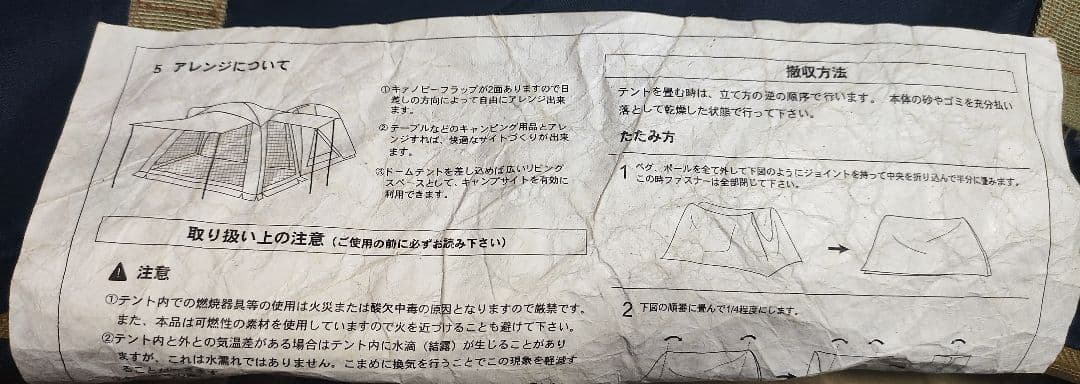 5 アレンジについて
①キャノピーフラップが2面ありますので日
差しの方向によって自由にアレンジ出来
ます。
②テーブルなどのキャンピング用品とアレ
ンジすれば、快適なサイトづくりが出来
ます。
③ドームテントを差し込めば広いリビング
スペースとして、キャンプサイトを有効に
利用できます。
取り扱い上の注意(ご使用の前に必ずお読み下さい)
注意
①テント内での燃焼器具等の使用は火災または酸欠中毒の原因となりますので厳禁です。
また、本品は可燃性の素材を使用していますので火を近づけることも避けて下さい。
②テント内と外との気温差がある場合はテント内に水滴(結露)が生じることがあり
ますが、これは水濡れではありません。こまめに換気を行うことでこの現象を軽減す
ることが
撤収方法
テントを畳む時は、立て方の逆の順序で行います。 本体の砂やゴミを充分払い
落として乾燥した状態で行って下さい。
たたみ方
1 ペグ、ポールを全て外して下図のようにジョイントを持って中央を折り込んで半分に畳みます。
この時ファスナーは全部閉じて下さい。
2 下図の順番に畳んで1/4程度にします。